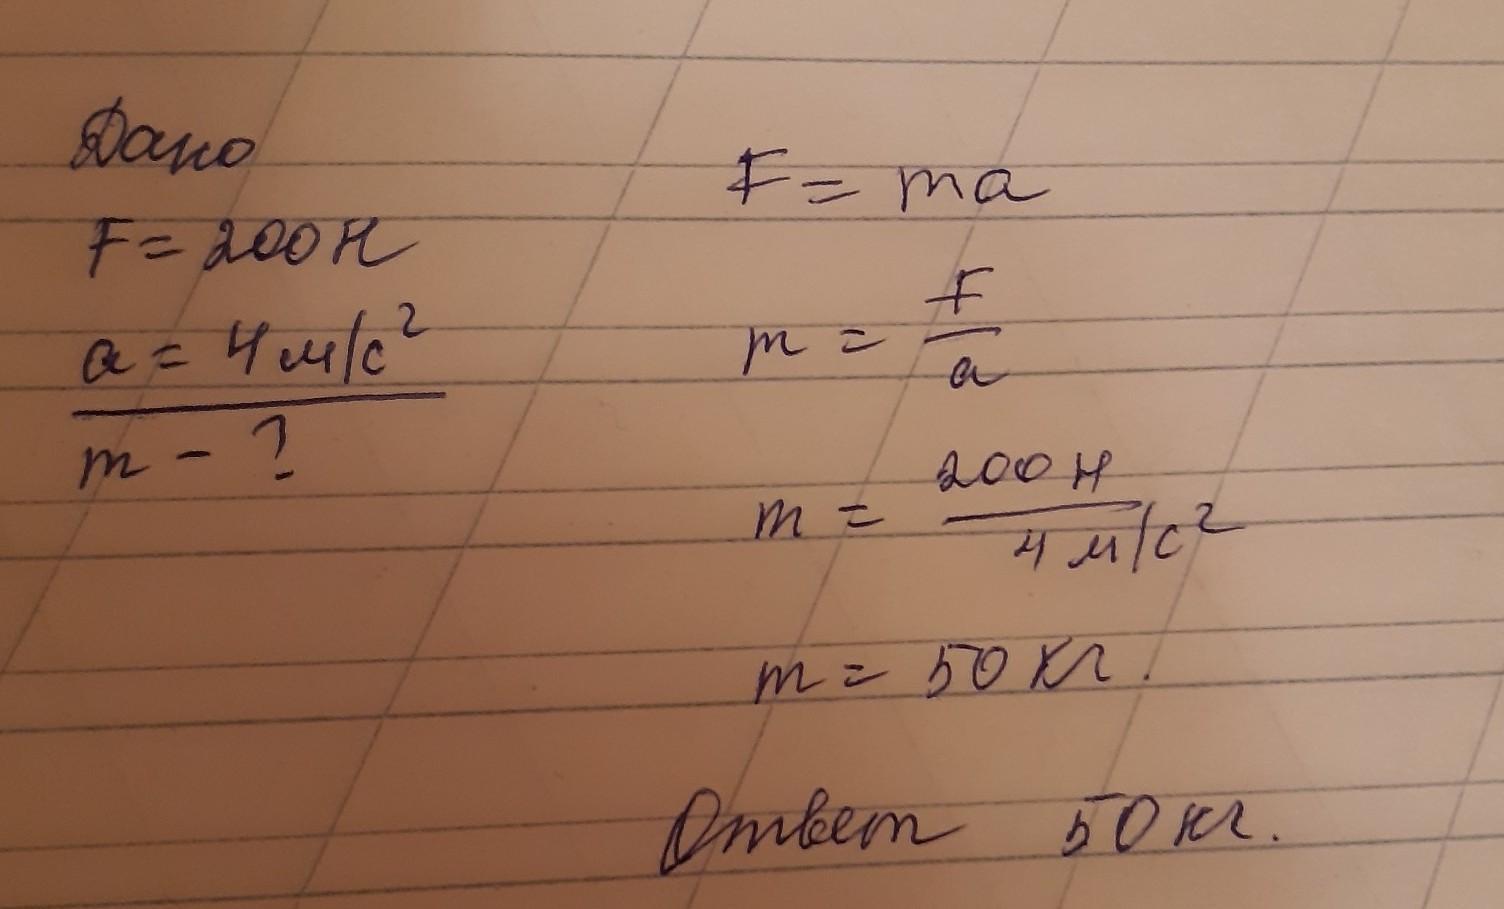 Дано
F = 200 Н
a = 4 м/с²
m - ?
F = ma
m = F/a
m = 200 Н / 4 м/с²
m = 50 кг.
Ответ 50 кг.